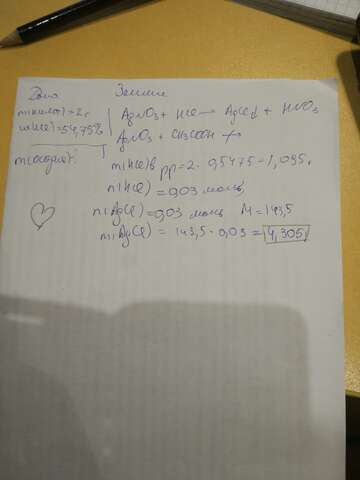 Дано
m(кислот) = 2г
w(HCl) = 54,75%
m(осадка)-?
AgNO3 + HCl → AgCl↓ + HNO3
AgNO3 + CH3COOH ↛
m(HCl) в рр = 2 · 0,5475 = 1,095г
n(HCl) = 0,03 моль
n(AgCl) = 0,03 моль M = 143,5
m(AgCl) = 143,5 · 0,03 = 4,305г